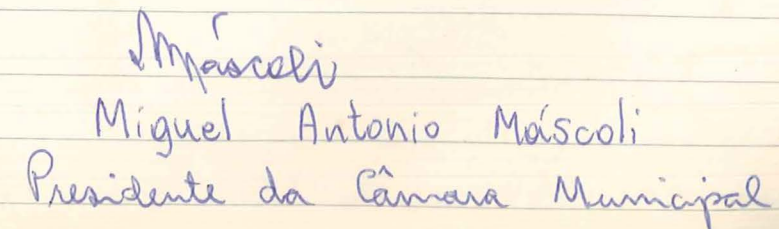 Mmáscoli
Miguel Antonio Máscoli
Presidente da Câmara Municipal